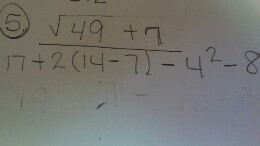 5. √49 + 7
17 + 2(14 - 7) - 4² - 8